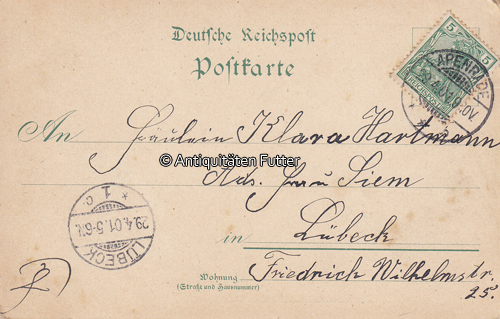 Deutsche Reichspost
Postkarte
5 5
APENRADE
An Fräulein Klara Hartmann
© Antiquitäten Futter
Ads. Frau Siem
in Lübeck
Wohnung Friedrich Wilhelmstr.
(Straße und Hausnummer)
25.
LÜBECK
29.4.01.5-6N.
* 1 c.